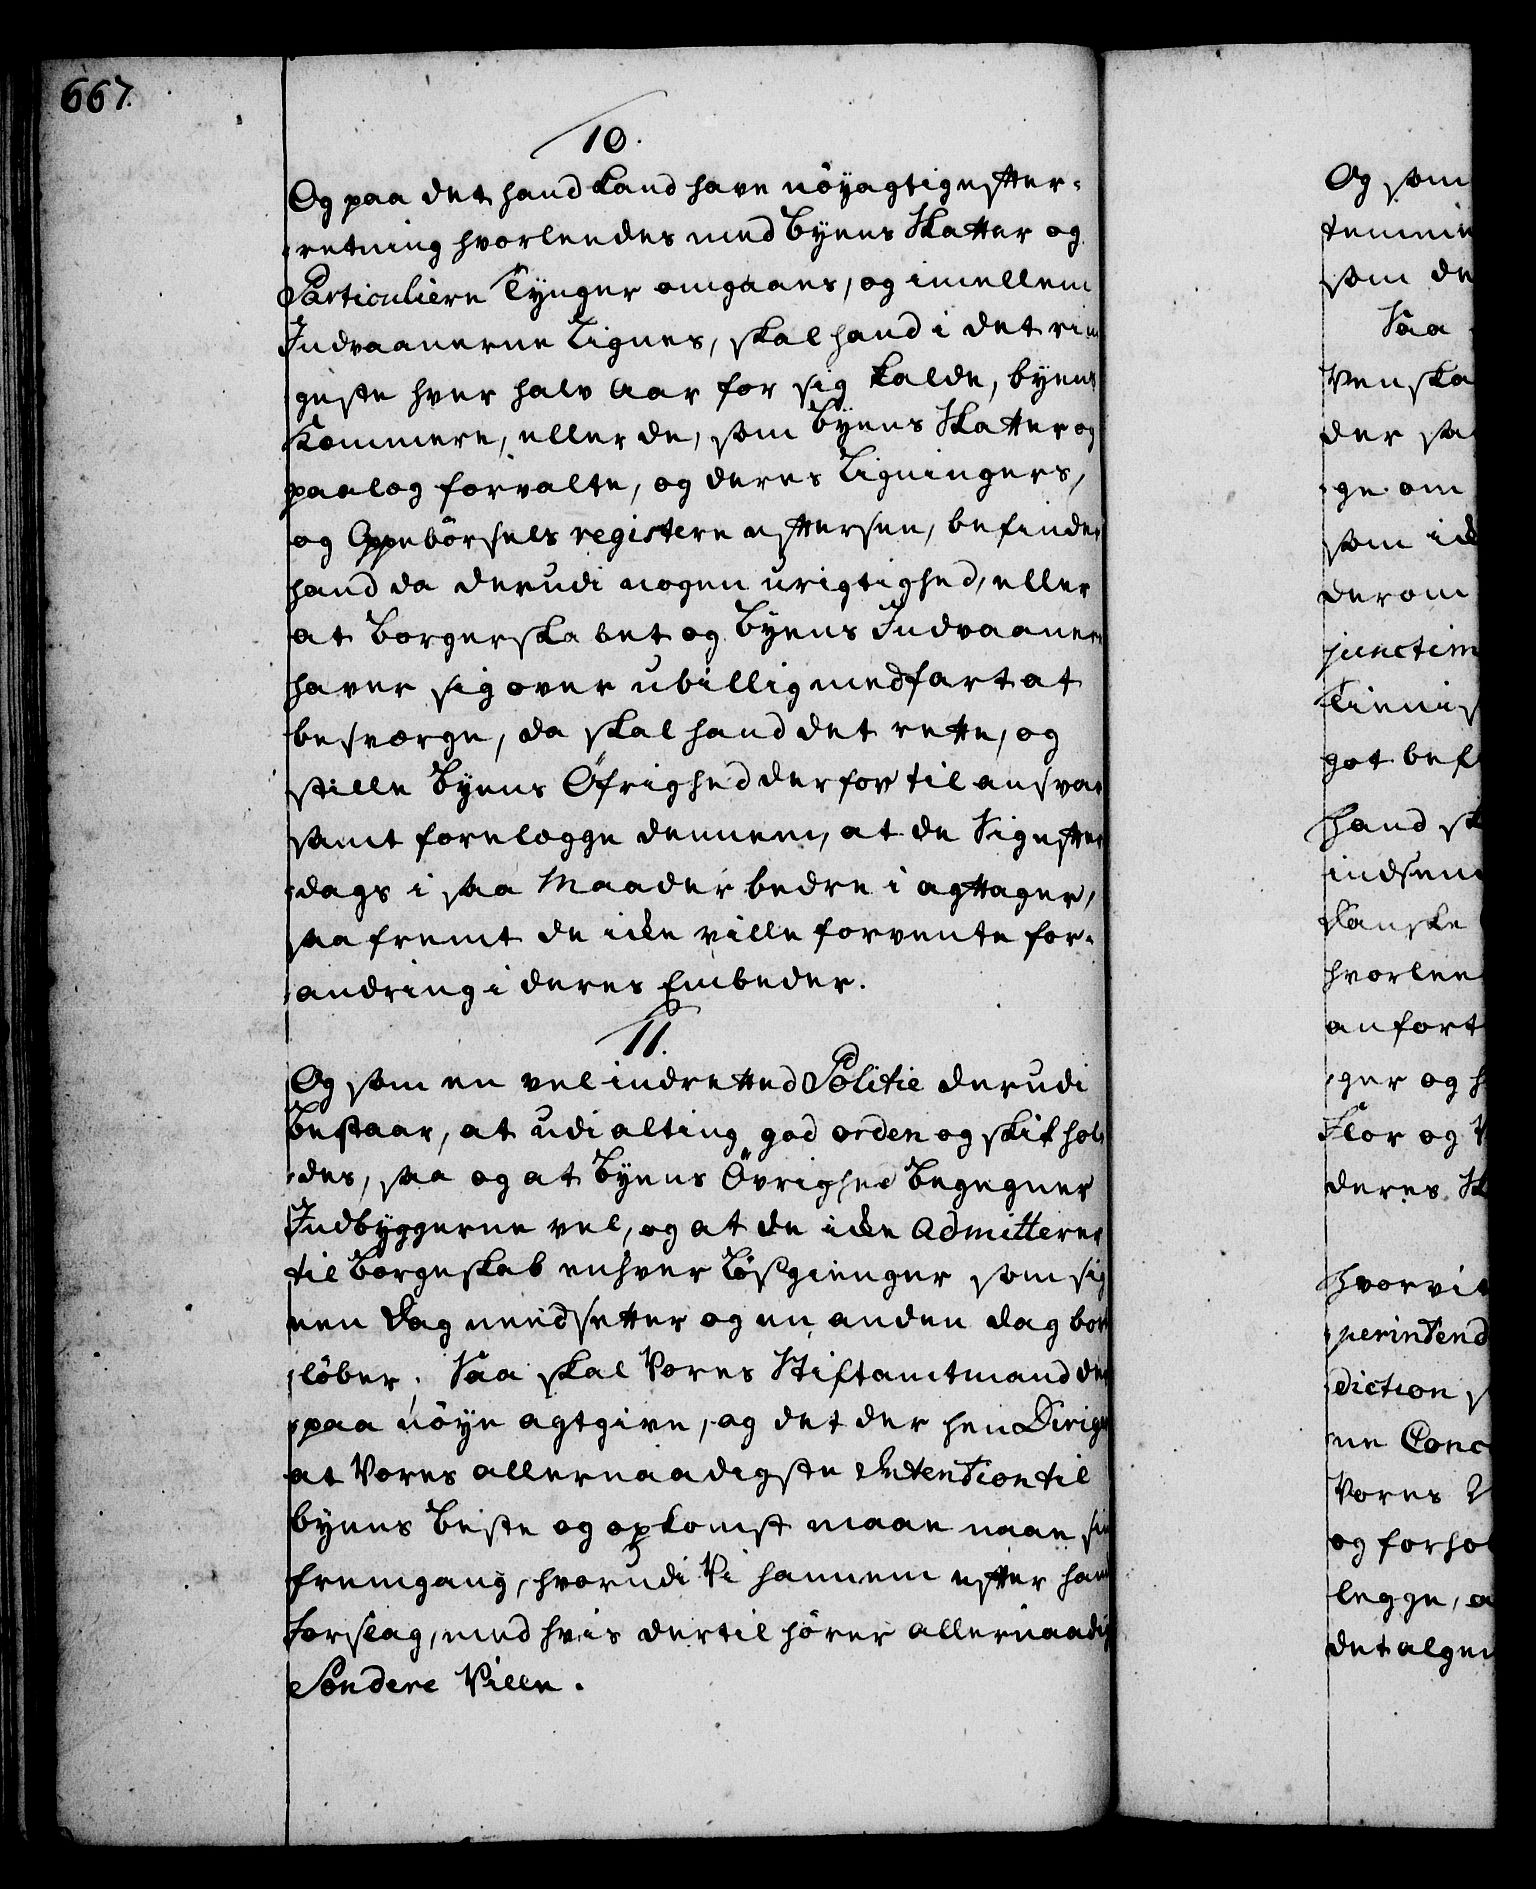 667.
10.
Og paa det hand kand have nöyagtig efter-
retning hvorleedes med Byens Skatter og
Particuliere Tynger omgaaes, og imellem
Indvaanerne Lignes, skal hand i det rin
geste hver halv Aar for sig kalde, byens
Kæmmere, eller de, som Byens Skatter og
paalæg forvalte, og deres Ligningers,
og Oppebörsels registere eftersee, befinder
hand da derudi nogen urigtighed, eller
at Borgerskabet og Byens Indvaanere
haver sig over ubillig medfart at
besværge, da skal hand det rette, og
stille Byens Öfrighed derfor til ansvar
samt forelægge dennem, at de Sig efter
dags i saa Maader bedre i agttager,
saa fremt de icke ville forvente for-
andring i deres Embeder.
11.
Og som en vel indretted Politie derudi
Bestaar, at udi alting god orden og skik hol
des, saa og at Byens Övrighed Begegner
Indbyggerne vel, og at de icke Admitterer
til Borgeskab enhver Lösgienger som sig
een Dag needsetter og en anden dag bort
löber. Saa skal Vores Stiftamtmand der
paa nöye agtgive, og det der hen Dirige
at Vores allernaadigste Intention til
byens Beste og opkomst maae naae sin
fremgang, hvorudi Vi hannem efter hans
Forslag, med hvis dertil hörer allernaadigst
Sondere Ville.
Og som
temme
som de
Saa
Venska
der sa
ge om
som ick
derom
junctim
Tienis
got befi
Hand sk
indsen
Danske
hvorlee
anfort
ger og h
Flor og V
deres Sk
Hvorvit
perintend
diction s
ne Conc
Vores
og forhol
legge, a
det alger